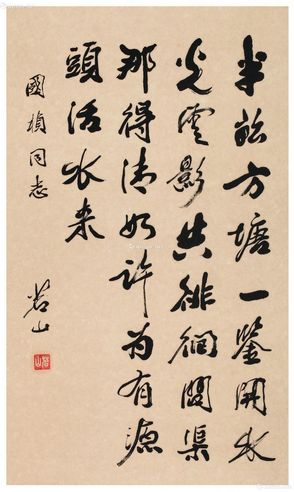 半畝方塘一鑒開水
光雲影共徘徊問渠
那得清如許為有源
頭活水來
國楨同志
若山